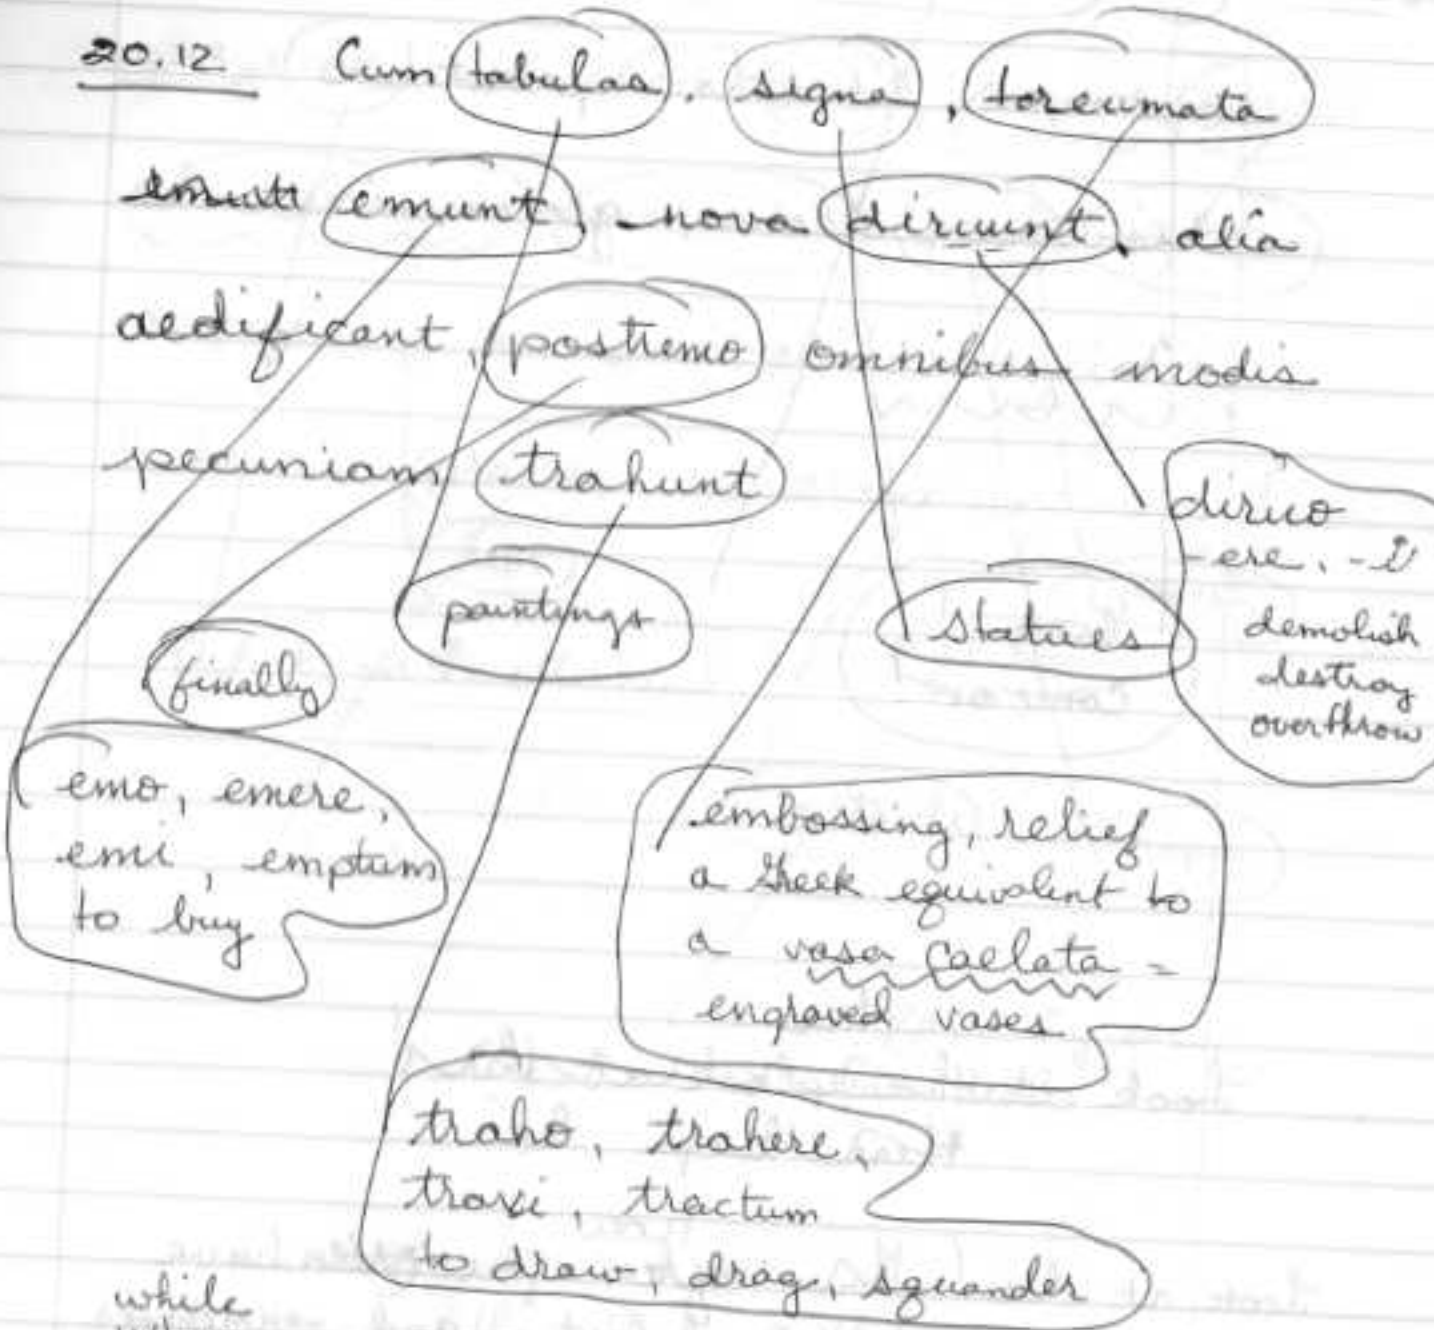 20.12 Cum tabulas, signa, toreumata
emunt, nova diruunt, alia
aedificant, postremo omnibus modis
pecuniam trahunt
diruo
-ere, -i
demolish
destroy
overthrow
paintings
statues
finally
emo, emere,
emi, emptum
to buy
embossing, relief
a Greek equivalent to
a vasa caelata =
engraved vases
traho, trahere,
traxi, tractum
to draw, drag, squander
while